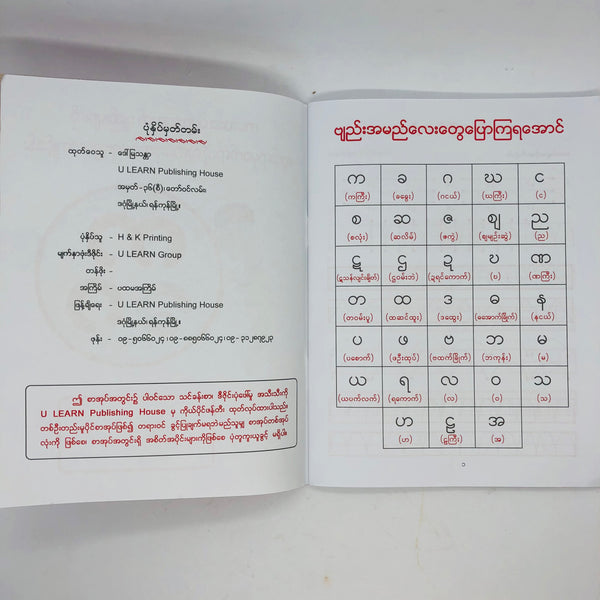 ပုံနှိပ်မှတ်တမ်း
ထုတ်ဝေသူ - ဒေါ်မြသန္တာ
U LEARN Publishing House
အမှတ် - ၃၆(စီ)၊ တော်ဝင်လမ်း၊
ဒဂုံမြို့နယ်၊ ရန်ကုန်မြို့။
ပုံနှိပ်သူ - H & K Printing
မျက်နှာဖုံးဒီဇိုင်း - U LEARN Group
တန်ဖိုး -
အကြိမ် - ပထမအကြိမ်
ဖြန့်ချိရေး - U LEARN Publishing House
ဒဂုံမြို့နယ်၊ ရန်ကုန်မြို့။
ဖုန်း - ၀၉-၅၀၆၆၀၂၄၊ ၀၉-၈၈၅၀၆၆၀၂၄၊ ၀၉-၃၁၂၈၇၉၂၃
ဤ စာအုပ်အတွင်း၌ ပါဝင်သော သင်ခန်းစာ၊ ဒီဇိုင်းပုံဖော်မှု အသီးသီးကို
U LEARN Publishing House မှ ကိုယ်ပိုင်ဖန်တီး ထုတ်လုပ်ထားပါသည်။
တစ်ဦးတည်းမူပိုင်စာအုပ်ဖြစ်၍ တရားဝင် ခွင့်ပြုချက်မရဘဲမည်သူမျှ စာအုပ်တစ်အုပ်
လုံးကို ဖြစ်စေ၊ စာအုပ်အတွင်းရှိ အစိတ်အပိုင်းများကိုဖြစ်စေ ပုံတူကူးယူခွင့် မရှိပါ။
ဗျည်းအမည်လေးတွေပြောကြရအောင်
က ခ ဂ ဃ င
(ကကြီး) (ခခွေး) (ဂငယ်) (ဃကြီး) (င)
စ ဆ ဇ ဈ ည
(စလုံး) (ဆလိမ်) (ဇကွဲ) (ဈမျဉ်းဆွဲ) (ည)
ဋ ဌ ဍ ဎ ဏ
(ဋသန်လျင်းချိတ်) (ဌဝမ်းဘဲ) (ဍရင်ကောက်) (ဎ) (ဏကြီး)
တ ထ ဒ ဓ န
(တဝမ်းပူ) (ထဆင်ထူး) (ဒထွေး) (ဓအောက်ခြိုက်) (နငယ်)
ပ ဖ ဗ ဘ မ
(ပစောက်) (ဖဦးထုပ်) (ဗထက်ခြိုက်) (ဘကုန်း) (မ)
ယ ရ လ ဝ သ
(ယပက်လက်) (ရကောက်) (လ) (ဝ) (သ)
ဟ ဠ အ
(ဟ) (ဠကြီး) (အ)
၁